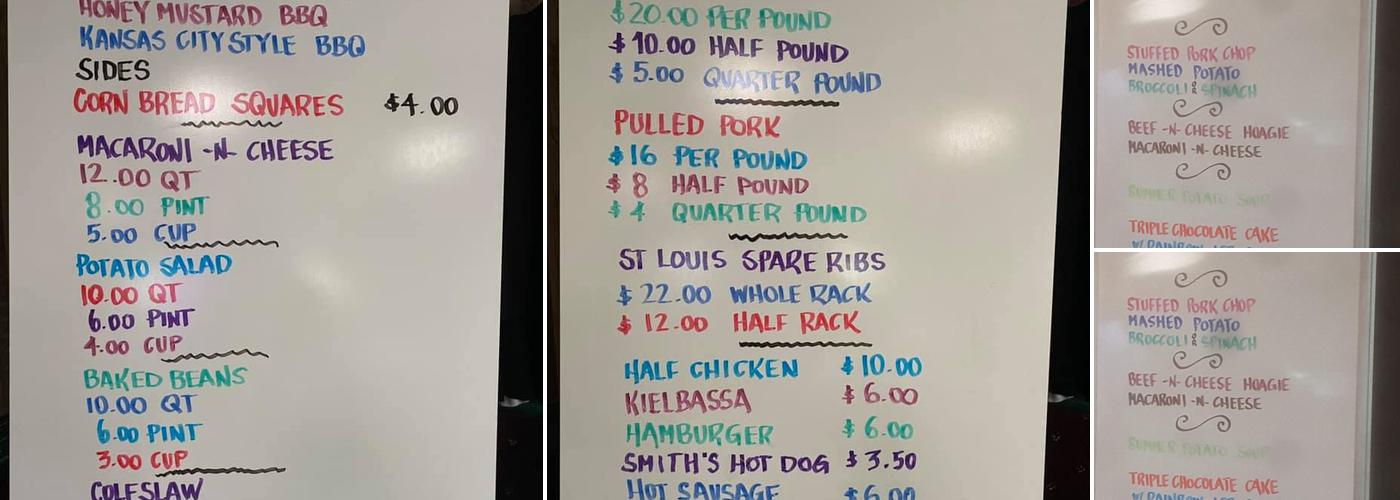 HONEY MUSTARD BBQ
KANSAS CITY STYLE BBQ
SIDES
CORN BREAD SQUARES $4.00
MACARONI -N- CHEESE
12.00 QT
8.00 PINT
5.00 CUP
POTATO SALAD
10.00 QT
6.00 PINT
4.00 CUP
BAKED BEANS
10.00 QT
6.00 PINT
3.00 CUP
COLESLAW
$20.00 PER POUND
$10.00 HALF POUND
$5.00 QUARTER POUND
PULLED PORK
$16 PER POUND
$8 HALF POUND
$4 QUARTER POUND
ST LOUIS SPARE RIBS
$22.00 WHOLE RACK
$12.00 HALF RACK
HALF CHICKEN $10.00
KIELBASSA $6.00
HAMBURGER $6.00
SMITH'S HOT DOG $3.50
HOT SAUSAGE $6.00
STUFFED PORK CHOP
MASHED POTATO
BROCCOLI OR SPINACH
BEEF -N- CHEESE HOAGIE
MACARONI -N- CHEESE
SUMMER POTATO SOUP
TRIPLE CHOCOLATE CAKE
STUFFED PORK CHOP
MASHED POTATO
BROCCOLI OR SPINACH
BEEF -N- CHEESE HOAGIE
MACARONI -N- CHEESE
SUMMER POTATO SOUP
TRIPLE CHOCOLATE CAKE